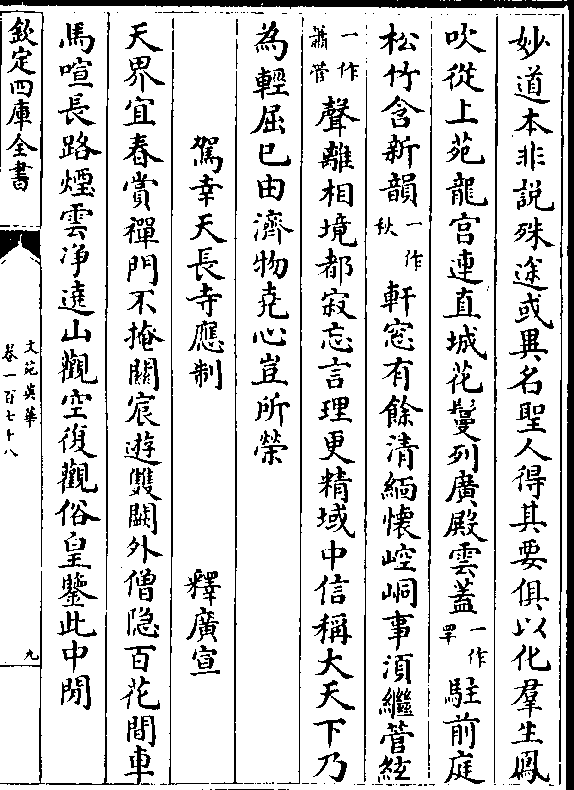 妙道本非説殊途或異名聖人得其要俱以化羣生鳳
吹從上苑龍宫連直城花鬘列廣殿雲蓋一作罕駐前庭
松竹含新韻一作秋軒窓有餘清緬懷崆峒事須繼管絃
一作蕭管聲離相境都寂忘言理更精域中信稱大天下乃
為輕屈己由濟物堯心豈所榮
駕幸天長寺應制 釋廣宣
天界宜春賞禪門不掩關宸遊雙闕外僧隐百花間車
馬喧長路煙雲净遠山觀空復觀俗皇鑒此中閒
欽定四庫全書 文苑英華 卷一百七十八 九